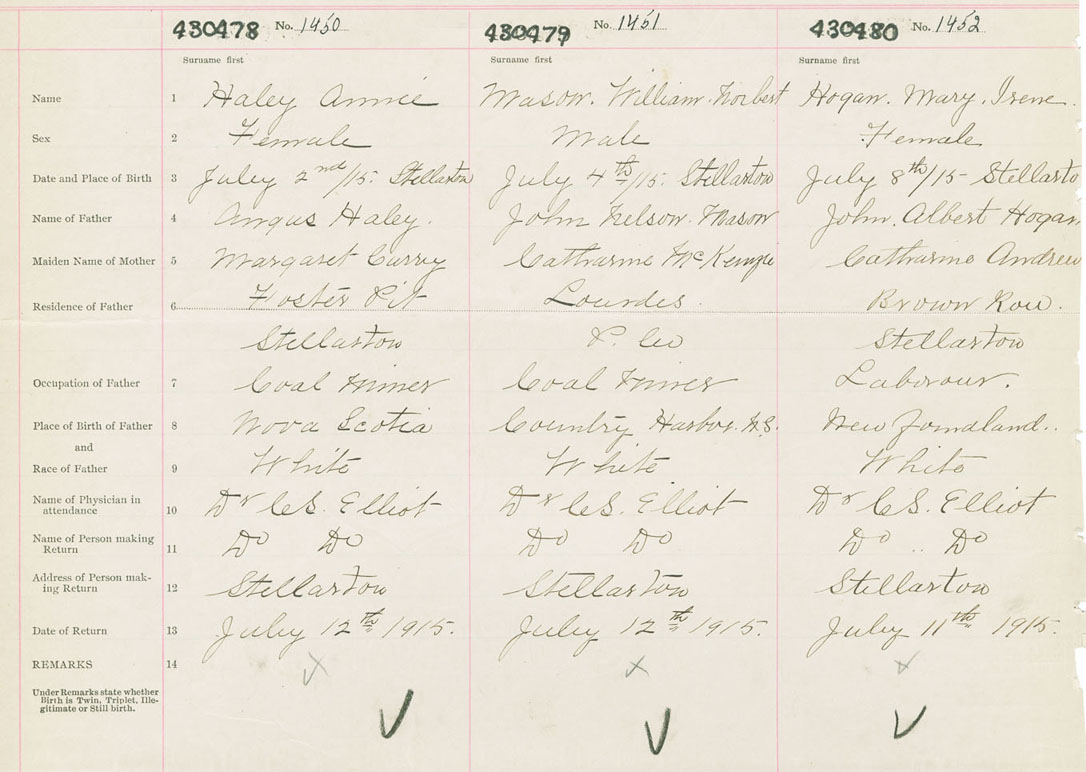 430478 No. 1450 430479 No. 1451 430480 No. 1452
Surname first Surname first Surname first
Name 1 Haley Annie Mason. William. Norbert Hogan. Mary. Irene.
Sex 2 Female Male Female
Date and Place of Birth 3 July 2nd/15. Stellarton July 4th/15. Stellarton July 8th/15 - Stellarto
Name of Father 4 Angus Haley. John Nelson. Mason John. Albert Hogan
Maiden Name of Mother 5 Margaret Curry Catharine McKenzie Catharine Andrew
Residence of Father 6 Foster Pit Lourdes. Brown Row.
Stellarton P. Co Stellarton
Occupation of Father 7 Coal Miner Coal Miner Labourour.
Place of Birth of Father 8 Nova Scotia Country Harbor. N.S. New Foundland..
and
Race of Father 9 White White White
Name of Physician in
attendance 10 Dr C.S. Elliot Dr C.S. Elliot Dr C.S. Elliot
Name of Person making
Return 11 Do Do Do Do Do .. Do
Address of Person mak-
ing Return 12 Stellarton Stellarton Stellarton
Date of Return 13 July 12th 1915. July 12th 1915. July 11th 1915.
REMARKS 14
Under Remarks state whether
Birth is Twin, Triplet, Ille-
gitimate or Still birth.